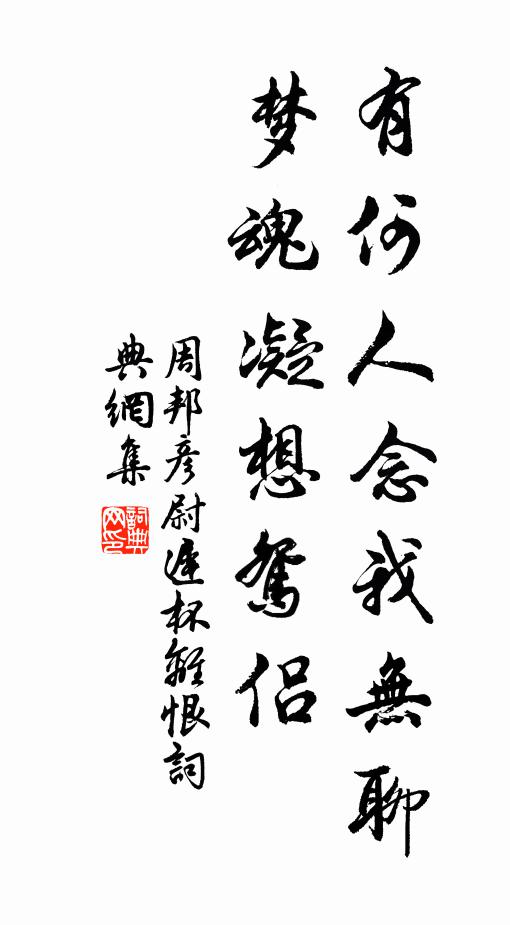 有何人念我無聊
梦魂凝想鴛侣
周邦彦尉遲杯離恨詞
典網集
詞典网印